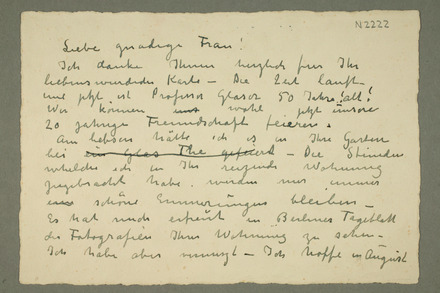 N2222
Liebe gnädige Frau!
Ich danke Ihnen herzlich für Ihr
Karte – Die Zeit lauft
und jetzt ist Professor Glaser 50 Jahre alt!
Wir können uns wohl jetzt unsere
20 jahrige Freundschaft feieren.
Am liebsten hätte ich es in Ihre Garden
bei ein Glas The gefeiert – Die Stunden
welche ich in Ihr reizende Wohnung
zugebracht habe werden mir immer
schöne Emmerungen bleiben –
Es hat mich erfreut in Berliner Tageblatt
die Fotografien Ihrer Wohnung zu sehn –
Ich habe aber – Ich hoffe in August